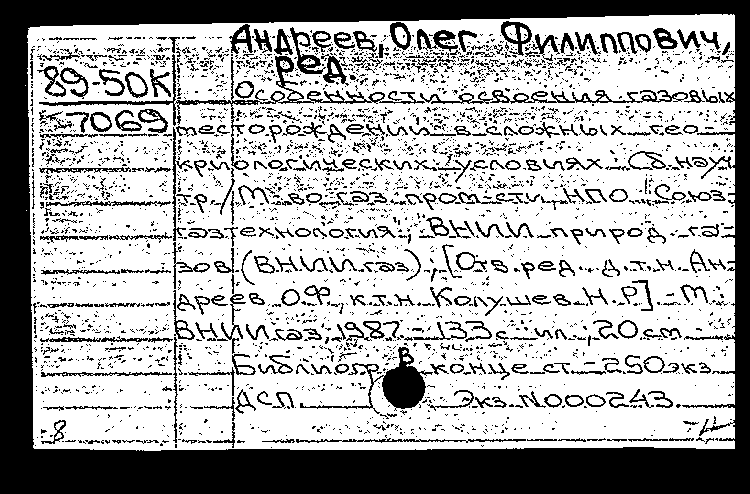 Андреев, Олег Филиппович,
ред.
89-50К
Особенности освоения газовых
7069
месторождений в сложных гео-
криологических условиях: Сб. науч.
тр. / М-во газ. пром-сти, НПО "Союз-
газтехнология", ВНИИ природ. га-
зов (ВНИИгаз); [Отв. ред. д.т.н. Ан-
дреев О.Ф., к.т.н. Колушев Н.Р.] - М.:
ВНИИгаз, 1987. - 133 с.: ил.; 20 см. -
Библиогр. в конце ст. - 250 экз.
ДСП. Экз. N000243.
-8